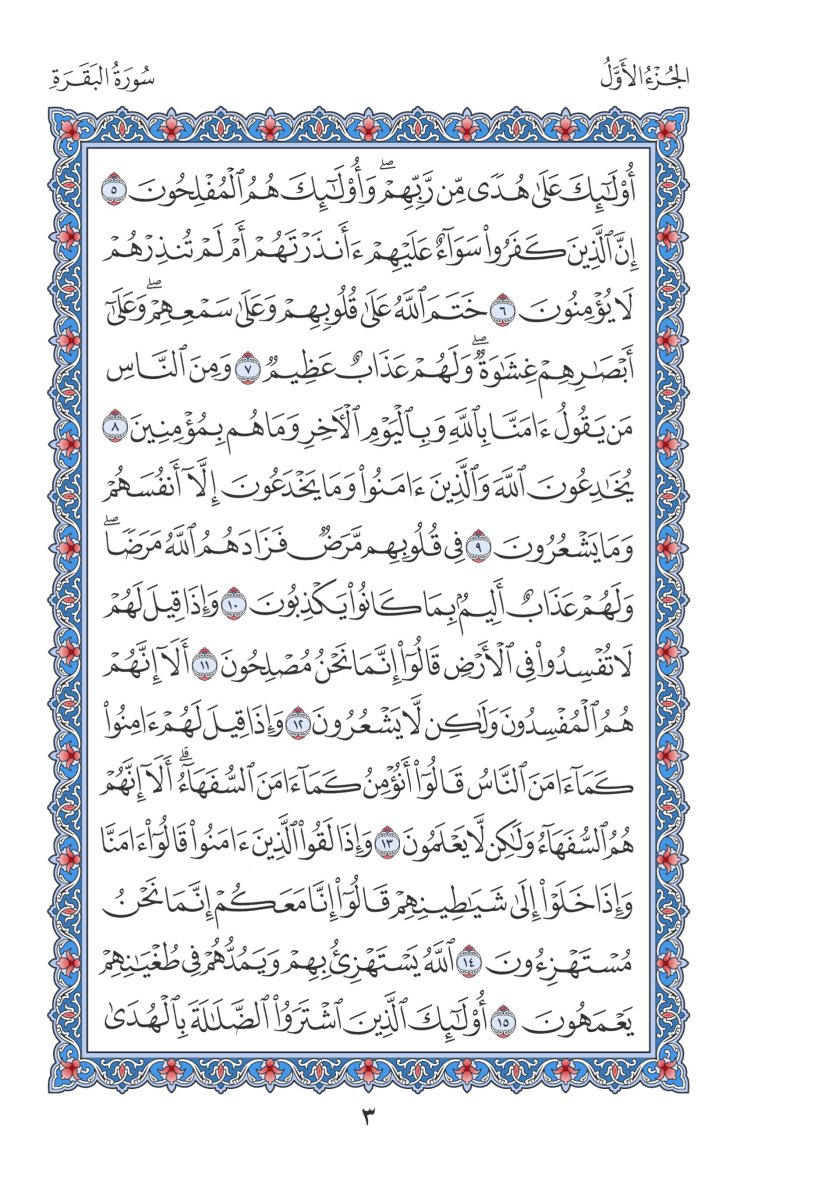 الجُزْءُ الأَوَّلُ
سُورَةُ البَقَرَةِ
أُوْلَٰٓئِكَ عَلَىٰ هُدٗى مِّن رَّبِّهِمۡۖ وَأُوْلَٰٓئِكَ هُمُ ٱلۡمُفۡلِحُونَ ٥
إِنَّ ٱلَّذِينَ كَفَرُواْ سَوَآءٌ عَلَيۡهِمۡ ءَأَنذَرۡتَهُمۡ أَمۡ لَمۡ تُنذِرۡهُمۡ
لَا يُؤۡمِنُونَ ٦ خَتَمَ ٱللَّهُ عَلَىٰ قُلُوبِهِمۡ وَعَلَىٰ سَمۡعِهِمۡۖ وَعَلَىٰٓ
أَبۡصَٰرِهِمۡ غِشَٰوَةٞۖ وَلَهُمۡ عَذَابٌ عَظِيمٞ ٧ وَمِنَ ٱلنَّاسِ
مَن يَقُولُ ءَامَنَّا بِٱللَّهِ وَبِٱلۡيَوۡمِ ٱلۡأٓخِرِ وَمَا هُم بِمُؤۡمِنِينَ ٨
يُخَٰدِعُونَ ٱللَّهَ وَٱلَّذِينَ ءَامَنُواْ وَمَا يَخۡدَعُونَ إِلَّآ أَنفُسَهُمۡ
وَمَا يَشۡعُرُونَ ٩ فِي قُلُوبِهِم مَّرَضٞ فَزَادَهُمُ ٱللَّهُ مَرَضٗاۖ
وَلَهُمۡ عَذَابٌ أَلِيمُۢ بِمَا كَانُواْ يَكۡذِبُونَ ١٠ وَإِذَا قِيلَ لَهُمۡ
لَا تُفۡسِدُواْ فِي ٱلۡأَرۡضِ قَالُوٓاْ إِنَّمَا نَحۡنُ مُصۡلِحُونَ ١١ أَلَآ إِنَّهُمۡ
هُمُ ٱلۡمُفۡسِدُونَ وَلَٰكِن لَّا يَشۡعُرُونَ ١٢ وَإِذَا قِيلَ لَهُمۡ ءَامِنُواْ
كَمَآ ءَامَنَ ٱلنَّاسُ قَالُوٓاْ أَنُؤۡمِنُ كَمَآ ءَامَنَ ٱلسُّفَهَآءُۗ أَلَآ إِنَّهُمۡ
هُمُ ٱلسُّفَهَآءُ وَلَٰكِن لَّا يَعۡلَمُونَ ١٣ وَإِذَا لَقُواْ ٱلَّذِينَ ءَامَنُواْ قَالُوٓاْ ءَامَنَّا
وَإِذَا خَلَوۡاْ إِلَىٰ شَيَٰطِينِهِمۡ قَالُوٓاْ إِنَّا مَعَكُمۡ إِنَّمَا نَحۡنُ
مُسۡتَهۡزِءُونَ ١٤ ٱللَّهُ يَسۡتَهۡزِئُ بِهِمۡ وَيَمُدُّهُمۡ فِي طُغۡيَٰنِهِمۡ
يَعۡمَهُونَ ١٥ أُوْلَٰٓئِكَ ٱلَّذِينَ ٱشۡتَرَوُاْ ٱلضَّلَٰلَةَ بِٱلۡهُدَىٰ
٣